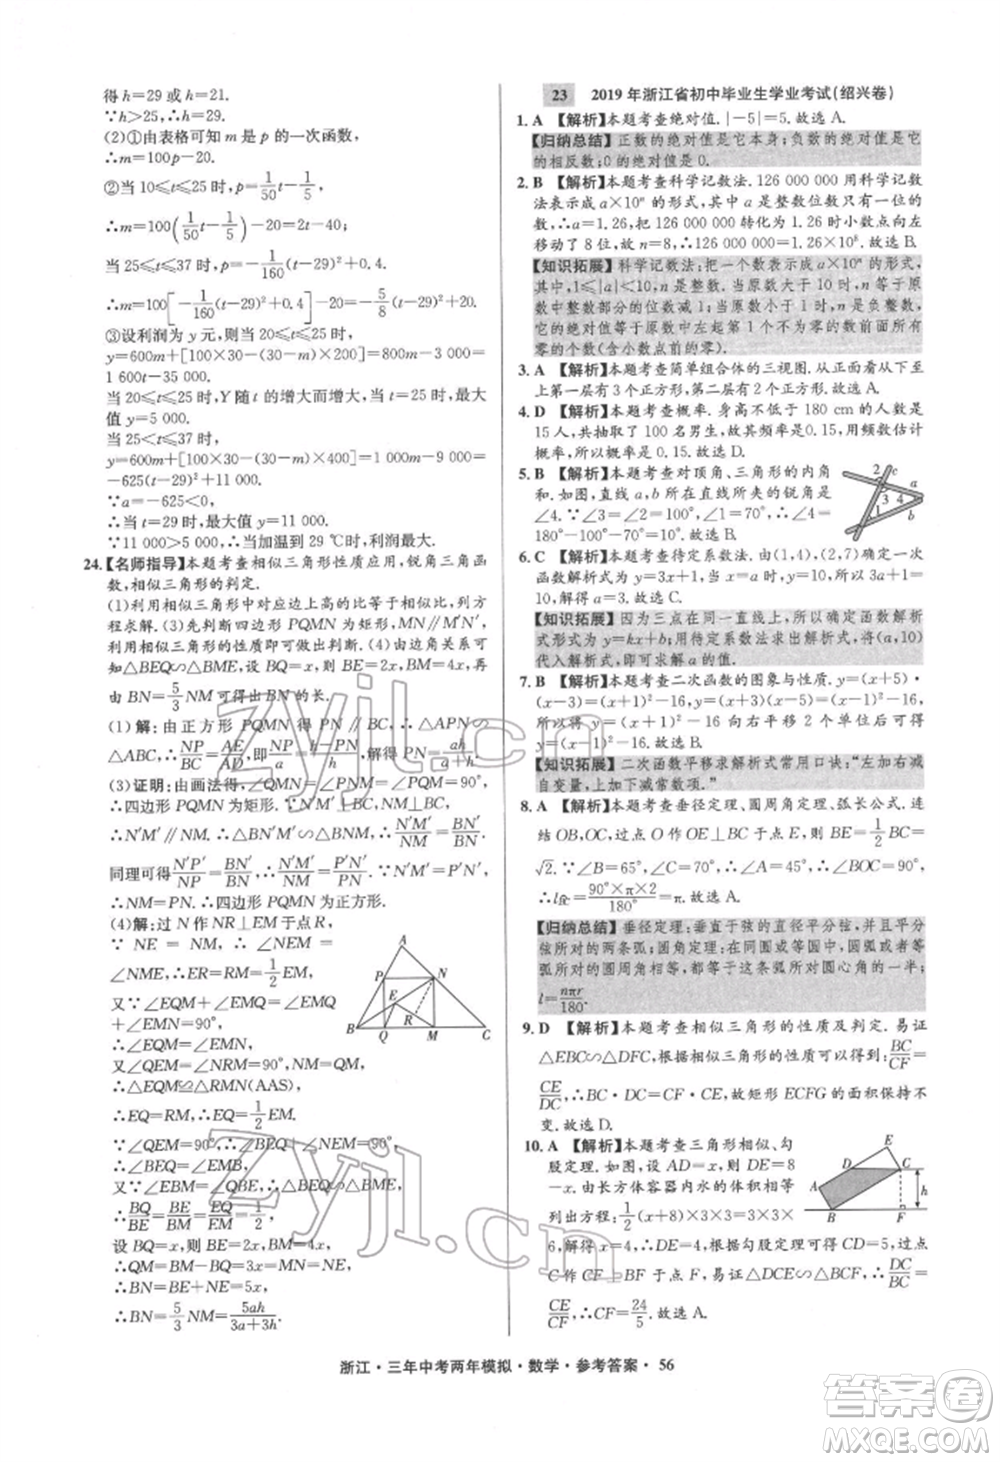 得h=29或h=21.
∵h>25,∴h=29.
(2)①由表格可知m是p的一次函数,
∴m=100p-20.
②当10≤t≤25时,p=1/50 t-1/5,
∴m=100(1/50 t-1/5)-20=2t-40.
当25≤t≤37时,p=-1/160(t-29)²+0.4.
∴m=100[-1/160(t-29)²+0.4]-20=-5/8(t-29)²+20.
③设利润为y元,则当20≤t≤25时,
y=600m+[100×30-(30-m)×200]=
1 600t-35 000.
当20≤t≤25时,Y随t的增大而增大,当t=25时,最大值y=5 000.
当25<t≤37时,
y=600m+[100×30-(30-m)×200]=
-625(t-29)²+11 000.
∵a=-625<0
∴当t=29时,最大值y=11 000.
∵11 000>5 000,∴当加温到29 ℃时,利润最大.
24.【名师指导】本题考查相似三角形性质应用,锐角三角函数,相似三角形的判定.
(1)利用相似三角形中对应边上高的比等于相似比,列方程求解.(3)先判断四边形PQMN为矩形,MN∥M′N′,利用相似三角形可以做出判断.(4)通过角度关系可知△BEQ∽△BME,设BQ=x,则BE=2x,BM=4x,再由BN=5/3 NM可得BN的长.
(1)解:由正方形PQMN得PN∥BC,∴△APN∽△ABC,∴NP/BC=AE/AD,即PN/a=h-PN/h,解得PN=ah/a+h.
(3)证明:由画法得,∠QMN=∠PQM=90°,
∴四边形PQMN为矩形.
∴N′M′∥NM,∴△BN′M′∽△BNM,∴N′M′/NM=BN′/BN.
同理可得N′P′/NP=BN′/BN,∴N′M′/NM=N′P′/NP,∵N′M′=N′P′,
∴NM=PN.∴四边形PQMN为正方形.
(4)解:过N作NR⊥EM于点R,
∵NE=NM,∴∠NEM=∠NME,∴ER=RM=1/2 EM
又∵∠EQM+∠EMQ=∠EMQ+∠EMN=90°,
∴∠EQM=∠EMN.
又∠QEM=∠NRM=90°,NM=QM,
∴△EQM≌△RMN(AAS)
∴EQ=RM,∴EQ=1/2 EM
∵∠QEM=90°,∴∠BEQ+∠NEM=90°
∴∠BEQ=∠EMB,又∵∠EBM=∠QBE,∴△BEQ∽△BME,
∴BQ/BE=BE/BM=EQ/EM=1/2,
设BQ=x,则BE=2x,BM=4x,
∴QM=BM-BQ=3x=MN=NE,
∴BN=BE+NE=5x,
∴BN=5/3 NM=5ah/3a+3h.
23 2019年浙江省初中毕业生学业考试(绍兴卷)
1. A 【解析】本题考查绝对值.|-5|=5.故选A.
【归纳总结】正数的绝对值是它本身;负数的绝对值是它的相反数;0的绝对值是0.
2. B 【解析】本题考查科学记数法.126 000 000用科学记数法表示成a×10ⁿ的形式,其中a整数位数只有一位的数,∴a=1.26,把126 000 000转化为1.26时小数点向左移动了8位,故n=8,∴126 000 000=1.26×10⁸.故选B.
【知识拓展】科学记数法:把一个数表示为a×10ⁿ的形式,其中,1≤|a|<10,n为整数.当原数大于10时,n等于原数中整数部分的位数减1;当原数小于1时,n为负数,它的绝对值等于原数中左起第1个不为零的数前面所有零的个数(含小数点前的零).
3. A 【解析】本题考查简单组合体的三视图.从正面看从下至上第一层有3个正方形,第二层有2个正方形.故选A.
4. D 【解析】本题考查概率.身高不低于180 cm的人数是15人,共抽取了100名男生,故其频率是0.15,用频率估计概率,所以概率约为0.15.故选D.
5. B 【解析】本题考查对顶角、三角形的内角和.如图,直线a,b所在直线所夹的锐角是∠4.∵∠2=∠3=100°,∠1=70°,∴∠4=180°-100°-70°=10°.故选B.
6. C 【解析】本题考查待定系数法.由(1,4),(2,7)可求直线解析式为y=3x+1,当y=10时,所以3a+1=10,解得a=3.故选C.
【知识拓展】因为三点在同一直线上,所以确定函数解析式形式为y=kx+b;用待定系数法求出解析式,将(a,10)代入解析式,即可求出a的值.
7. B 【解析】本题考查二次函数的图象与性质.y=(x+5)·(x-3)=(x+1)²-16,y=(x+3)(x-5)=(x-1)²-16,y=(x+1)²-16向右平移2个单位后可得y=(x-1)²-16.故选B.
【知识拓展】二次函数平移求解析式常用口诀:"左加右减自变量,上加下减常数项."
8. A 【解析】本题考查垂径定理、圆周角定理、弧长公式.连结OB,OC,过点O作OE⊥BC于点E,则BE=1/2 BC=√2.∵∠B=65°,∠C=70°,∴∠A=45°,∴∠BOC=90°,∴l=90°×π×2/180°=π.故选A.
【归纳总结】垂径定理:垂直于弦的直径平分弦,并且平分弦所对的两条弧;圆角定理:在同圆或等圆中,同弧或等弧所对的圆周角相等,都等于这条弧所对圆心角的一半;l=nπr/180.
9. D 【解析】本题考查相似三角形的性质及判定.易证△EBC∽△DFC,根据相似三角形的性质可以得到:BC/FC=CE/DC,∴BC·DC=CF·CE,故矩形ECFG的面积保持不变.故选D.
10. A 【解析】本题考查三角形相似、勾股定理.如图,设AD=x,则DE=8-x,根据长方体容器内水的体积等量关系列出方程:1/2(x+8)×3×3=3×3×6,解得x=4,∴DE=4,根据勾股定理可得CD=5,过点C作CF⊥BF于点F,易证△CDE∽△BCF,∴DC/BC=CE/CF,∴CF=24/5.故选A.
浙江·三年中考两年模拟·数学·参考答案·56
zyjl.cn
zyjl.cn
答案圈
MXQE.COM